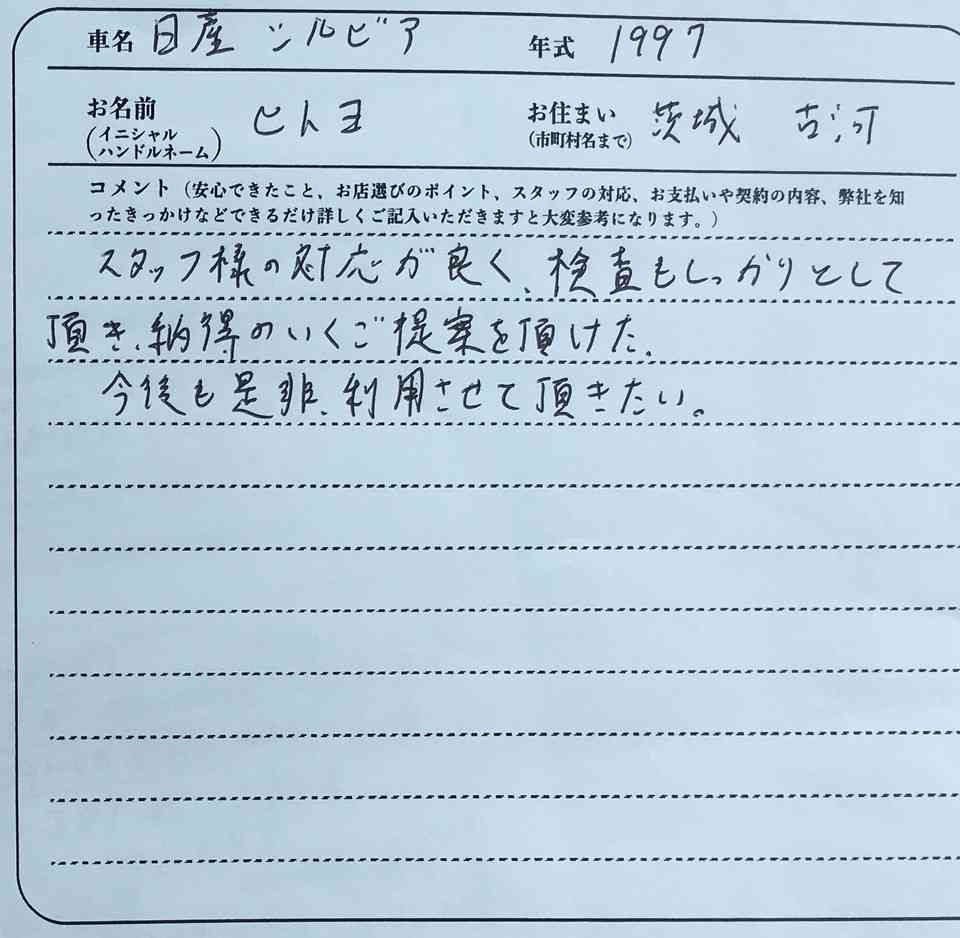 車名 日産 シルビア 年式 1997
お名前 (イニシャル ハンドルネーム) ヒトヨ お住まい (市町村名まで) 茨城 古河
コメント（安心できたこと、お店選びのポイント、スタッフの対応、お支払いや契約の内容、弊社を知
ったきっかけなどできるだけ詳しくご記入いただきますと大変参考になります。）
スタッフ様の対応が良く、検査もしっかりとして
頂き、納得のいくご提案を頂けた。
今後も是非、利用させて頂きたい。